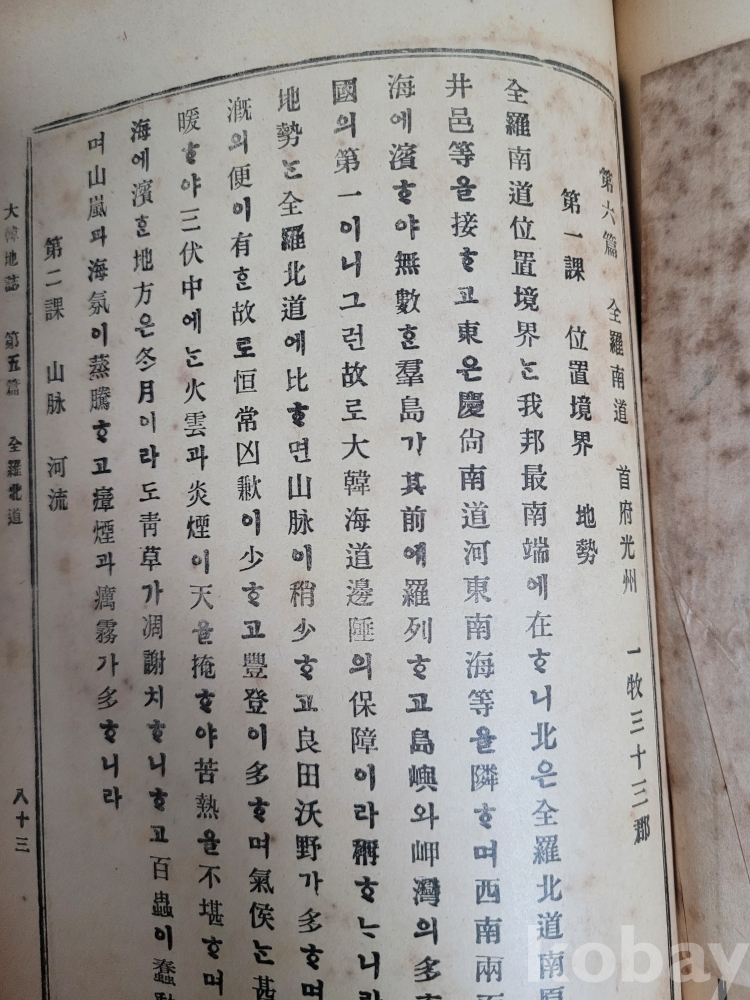 第六篇 全羅南道 首府光州 一牧三十三郡
第一課 位置境界 地勢
全羅南道位置境界ᄂᆞᆫ我邦最南端에在ᄒᆞ니北은全羅北道南原
井邑等을接ᄒᆞ고東은慶尙南道河東南海等을隣ᄒᆞ며西南兩
海에濱ᄒᆞ야無數ᄒᆞᆫ羣島가其前에羅列ᄒᆞ고島嶼와岬灣의多
國의第一이니그런故로大韓海道邊陲의保障이라稱ᄒᆞᄂᆞ니라
地勢ᄂᆞᆫ全羅北道에比ᄒᆞ면山脉이稍少ᄒᆞ고良田沃野가多ᄒᆞ며
漑의便이有ᄒᆞᆫ故로恒常凶歉이少ᄒᆞ고豐登이多ᄒᆞ며氣侯ᄂᆞᆫ甚
暖ᄒᆞ야三伏中에ᄂᆞᆫ火雲과炎煙이天을掩ᄒᆞ야苦熱을不堪ᄒᆞ며
海에濱ᄒᆞᆫ地方은冬月이라도靑草가凋謝치ᄒᆞ니ᄒᆞ고百蟲이蠢動
며山嵐과海氛이蒸騰ᄒᆞ고瘴煙과癘霧가多ᄒᆞ니라
第二課 山脉 河流
大韓地誌 第五篇 全羅北道 八十三
kobay